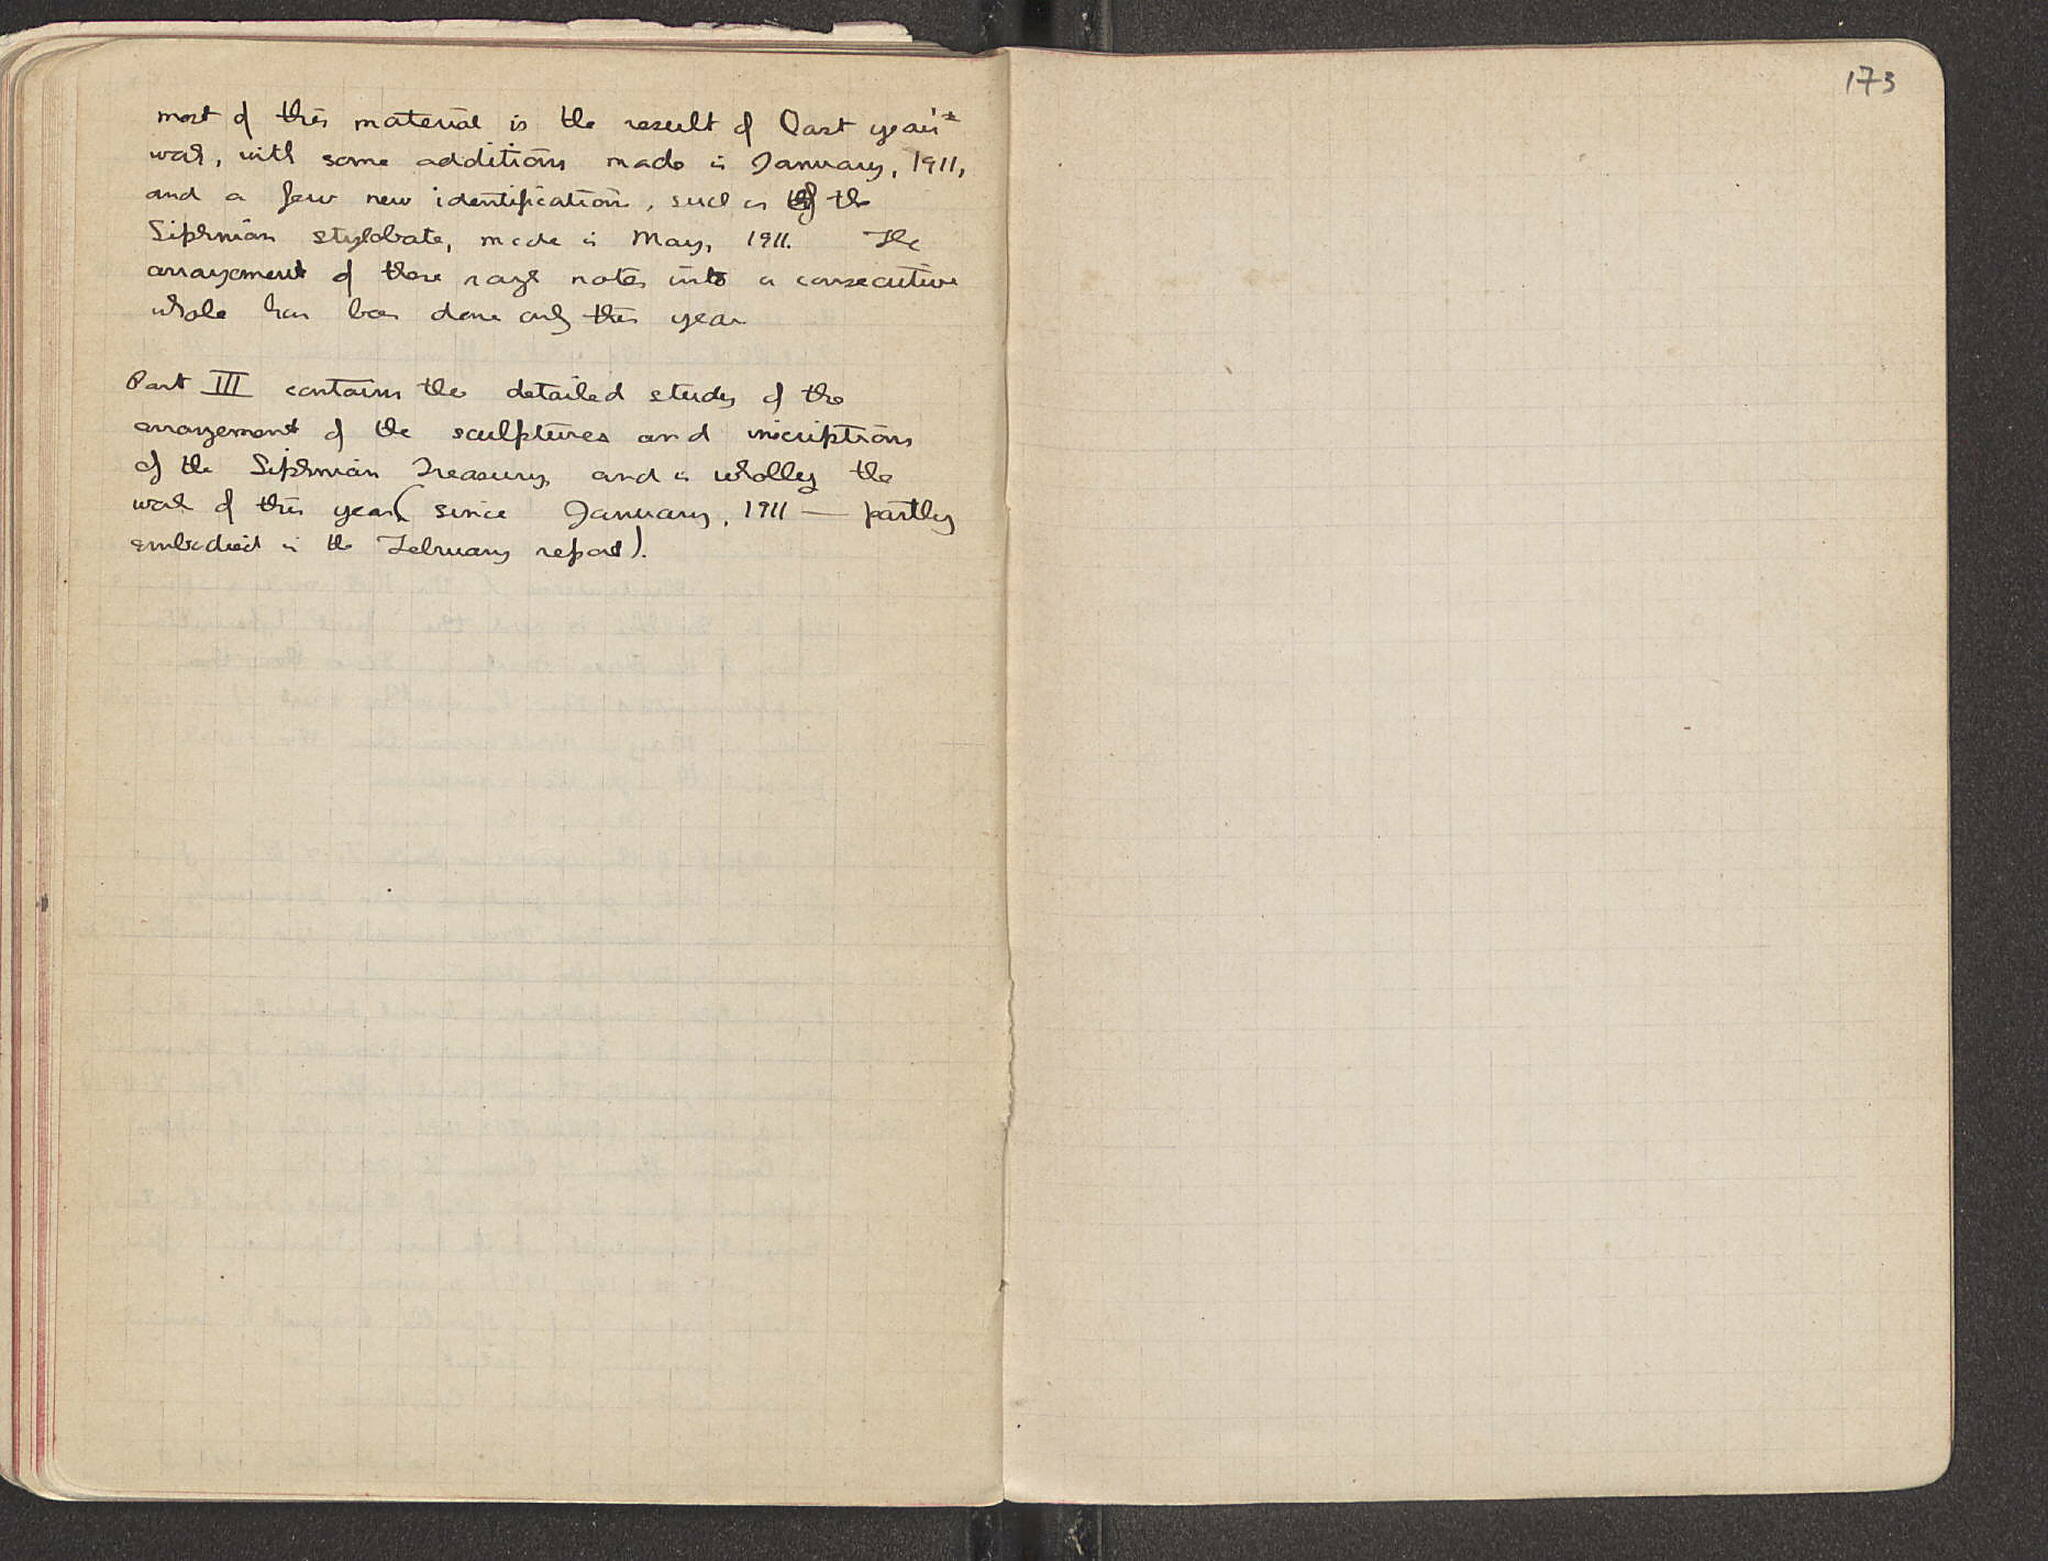 most of this material is the result of last year's
work, with some additions made in January, 1911,
and a few new identifications, such as of the
Siphnian stylobate, made in May, 1911. The
arrangement of these rough notes into a consecutive
whole has been done only this year
Part III contains the detailed study of the
arrangement of the sculptures and inscriptions
of the Siphnian Treasury, and is wholly the
work of this year (since January, 1911 — partly
embodied in the February report).
173